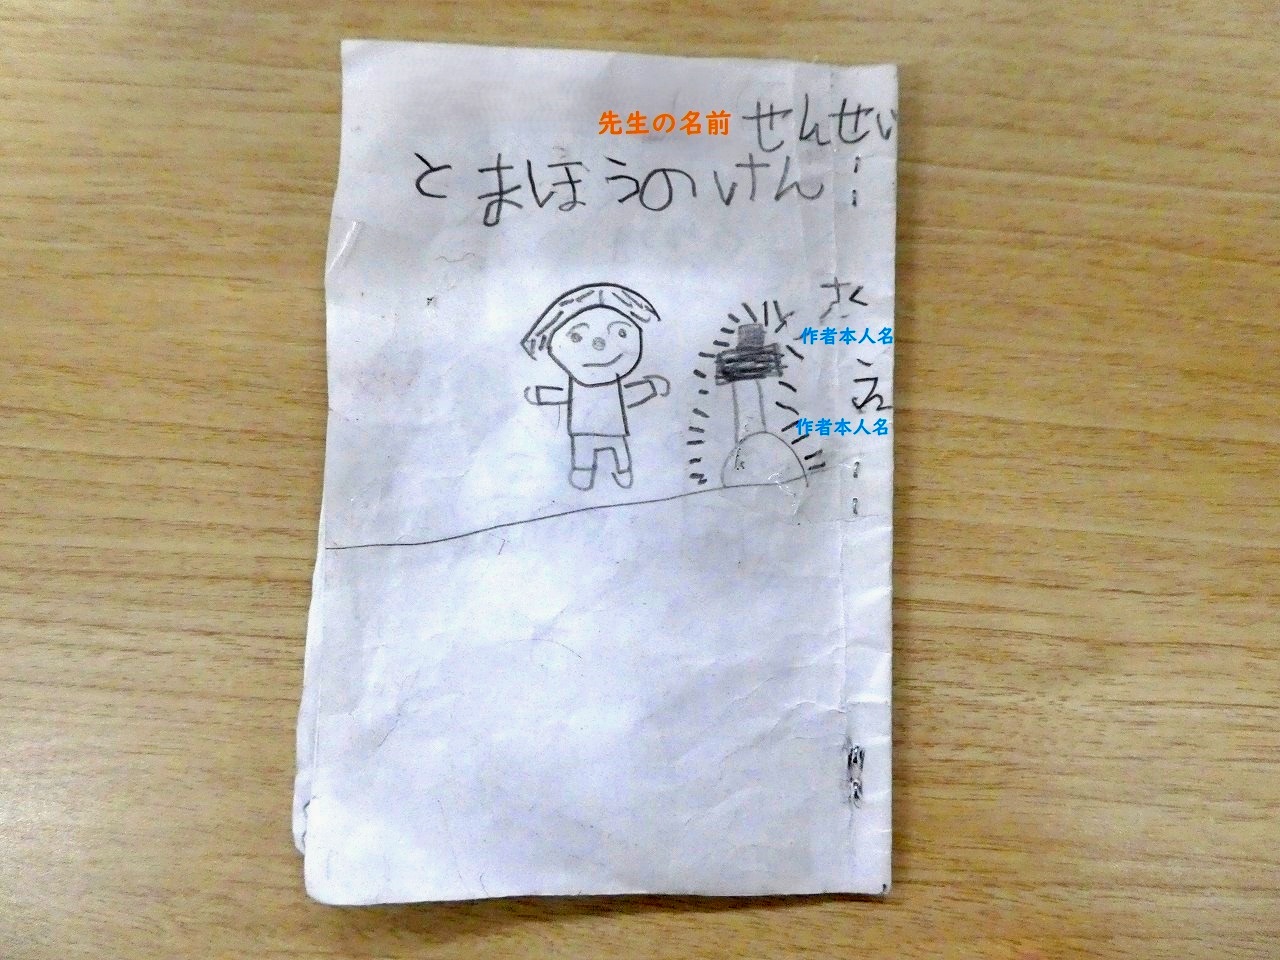 先生の名前 せんせい
と まほうの けん
さく
作者本人名
え
作者本人名